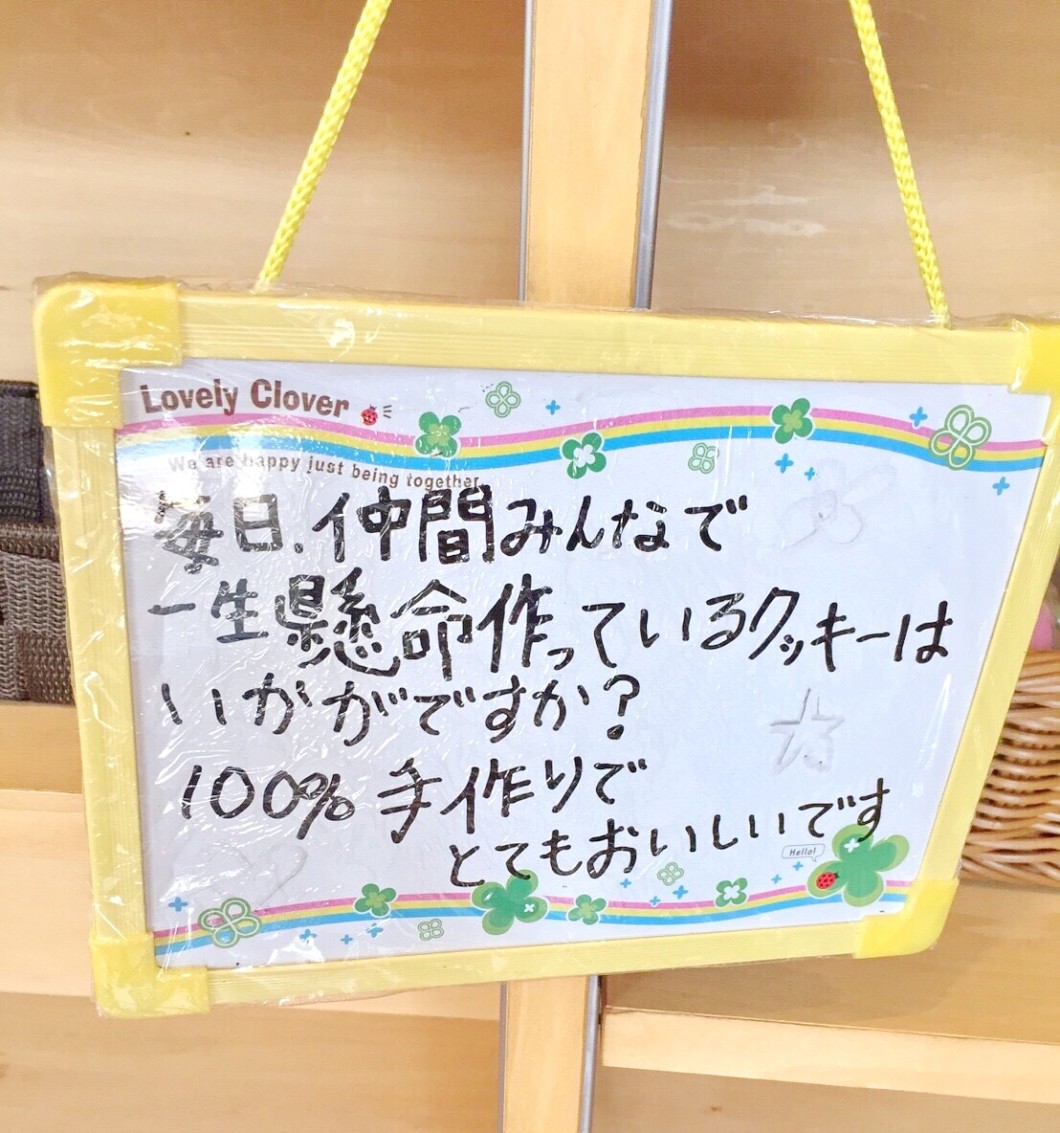 Lovely Clover
We are happy just being together.
毎日.仲間みんなで
一生懸命作っているクッキーは
いかがですか?
100%手作りで
とてもおいしいです
Hello!